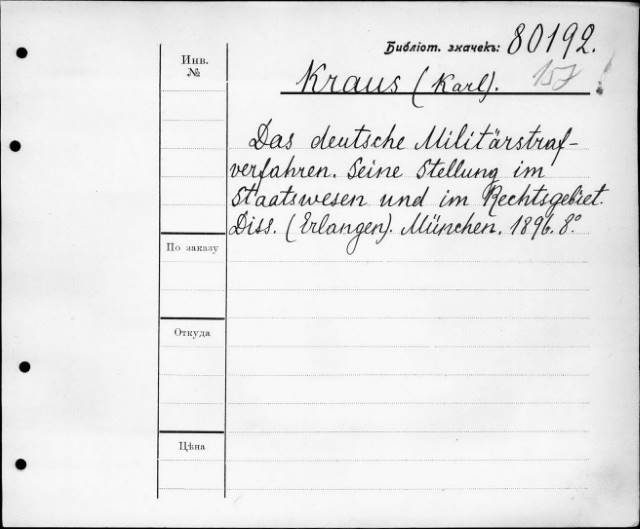 Библіот. значекъ: 80192.
Инв.
№
Kraus (Karl). 157
Das deutsche Militärstraf-
verfahren. Seine Stellung im
Staatswesen und im Rechtsgebiet.
Diss. (Erlangen). München. 1896. 8°.
По заказу
Откуда
Цѣна